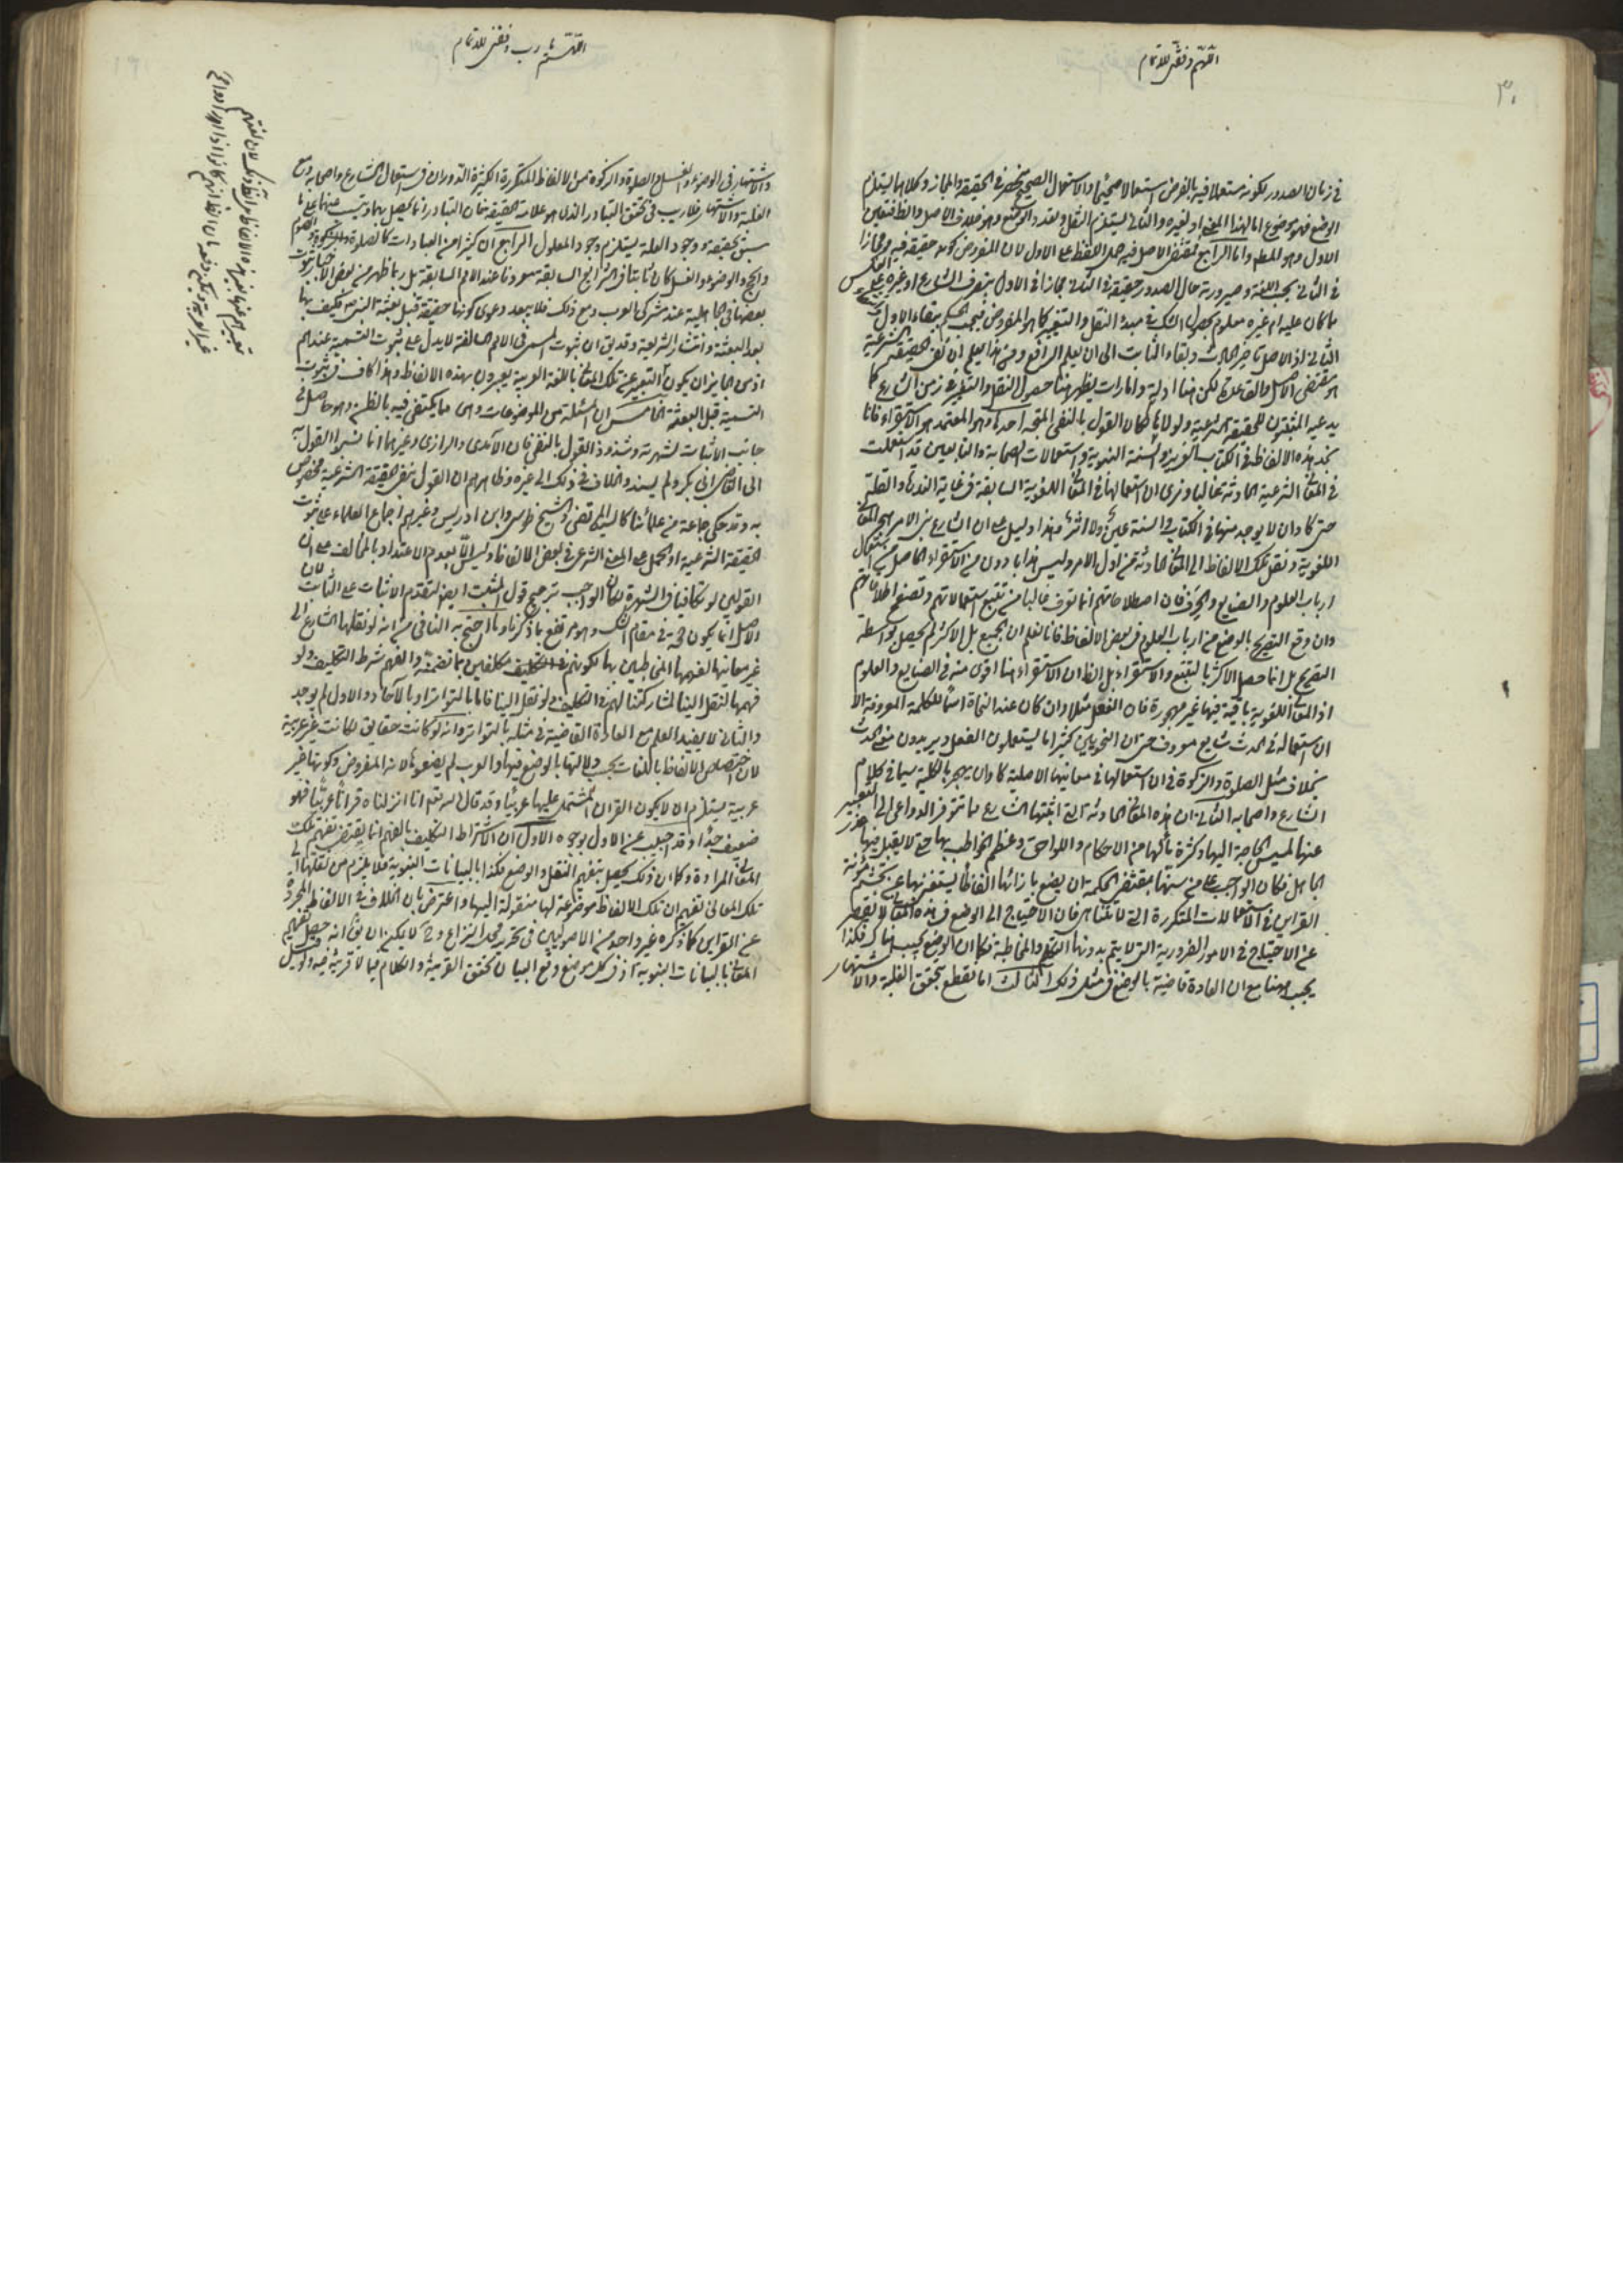 اللهم وفقني للاتمام
٣٠
في زمان الصدور لكونه مستعملا فيه بالفرض استعمالا صحيحا والاستعمال الصحيح منحصر في الحقيقة والمجاز وكلاهما يستلزم
الوضع فهو موضوع اما لهذا المعنى او لغيره والثاني يستلزم النقل وتعدد الوضع وهو خلاف الاصل والظ فتعين
الاول وهو المطلوب واما الرابع فمقتضى الاصل فيه حمل اللفظ على الاول لان المفروض كونه حقيقة فيه ومجازا
في الثاني بحسب اللغة وصيرورته حال الصدور حقيقة في الثاني مجازا في الاول بتصرف الشارع او غيره على العكس
ما كان عليه امر غير معلوم لحصول الشك في مبدء النقل والتغيير كما هو المفروض فيجب الحكم ببقاء الاول
الثاني اذ الاصل تاخر الحادث وبقاء الثابت الى ان يعلم الرافع ومن هذا يعلم ان نفي الحقيقة الشرعية
هو مقتضى الاصل والقاعدة لكن هنا ادلة وامارات يظهر منها حصول النقل والتغيير في زمن الشارع كما
يدعيه المثبتون للحقيقة الشرعية ولولاها لكان القول بالنفي المتجه احدها وهو المعتمد هو الاستقراء فانا
نجد هذه الالفاظ في الكتاب العزيز والسنة النبوية واستعمالات الصحابة والتابعين قد استعملت
في المعاني الشرعية الحادثة غالبا ونرى ان استعمالها في المعاني اللغوية السابقة في غاية الندرة والقلة
حتى كاد ان لا يوجد منها في الكتاب والسنة عين ولا اثر وهذا دليل على ان الشارع بنى الامر على هجر المعاني
اللغوية ونقل تلك الالفاظ الى المعاني الحادثة من اول الامر وليس هذا بادون من الاستقراء الحاصل من استعمال
ارباب العلوم والصنايع والحرف فان اصطلاحاتهم انما تعرف غالبا من تتبع استعمالاتهم وتصفح اطلاقاتهم
وان وقع التصريح بالوضع من ارباب العلوم في بعض الالفاظ فانا نعلم ان الجميع بل الاكثر لم يحصل بواسطة
التصريح بل انما حصل الاكثر بالتتبع والاستقراء بل الظ ان الاستقراء هنا اقوى منه في الصنايع والعلوم
اذ المعاني اللغوية باقية فيها غير مهجورة فان الفعل مثلا وان كان عند النحاة اسما للكلمة المعروفة الا
ان استعماله في الحدث شايع معروف حتى ان النحويين كثيرا ما يستعملون الفعل ويريدون منه الحدث
بخلاف مثل الصلوة والزكوة فان استعمالها في معانيها الاصلية كاد ان يهجر بالكلية سيما في كلام
الشارع واصحابه الثاني ان هذه المعاني الحادثة التي اثبتها الشارع مما تتوفر الدواعي الى التعبير
عنها لمسيس الحاجة اليها وكثرة ما لها من الاحكام واللواحق وعظم الخواطب بها حتى لا يقبل فيها عذر
الجاهل فكان الواجب على من سنها بمقتضى الحكمة ان يضع بازائها الفاظا يستغنى بها عن تجشم مؤنة
القراين في الاستعمالات المتكررة التي لا تتناهى فان الاحتياج الى الوضع في هذه المعاني لا يقصر
عن الاحتياج في الامور الضرورية التي لا يتم بدونها التفهم والمخاطبة فكما ان الوضع يجب هناك فكذا
يجب هنا مع ان العادة قاضية بالوضع في مثل ذلك الثالث انا نقطع بتحقق الغلبة والاشتهار
اللهم يا رب وفقني للاتمام
والاشتهار في الوضوء والغسل والصلوة والزكوة من الالفاظ المتكررة الكثيرة الدوران في استعمال الشارع واصحابه ومع
الغلبة والاشتهار فلا ريب في تحقق التبادر الذي هو علامة الحقيقة فان التبادر انما يحصل بهما
سبق تحقيقه ووجود العلة يستلزم وجود المعلول الرابع ان كثيرا من العبادات كالصلوة والزكوة والصوم
والحج والوضوء والغسل كان ثابتا في الشرايع السابقة معروفا عند الامم السابقة بل ربما ظهر من بعض الاخبار ثبوت
بعضها في الجاهلية عند مشركي العرب ومع ذلك فلا يبعد دعوى كونها حقيقة قبل بعثة النبي ص فكيف بها
بعد البعثة وانتشار الشريعة وقد يق ان ثبوت المسمى في الامم السالفة لا يدل على ثبوت التسمية عندهم
اذ من الجايز ان يكون التعبير عن تلك المعاني باللغة العربية يعبرون بهذه الالفاظ وهذا كاف في ثبوت
التسمية قبل البعثة الخامس ان المسئلة من الموضوعات وهي مما يكتفى فيه بالظن وهو حاصل في
جانب الاثبات لشهرته وشذوذ القول بالنفي فان الآمدي والرازي وغيرهما انما نسبوا القول به
الى القاضي ابي بكر ولم يسندوا الخلاف في ذلك الى غيره وظاهرهم ان القول بنفي الحقيقة الشرعية مخصوص
به وقد حكى جماعة من علمائنا كالسيد المرتضى والشيخ الطوسي وابن ادريس وغيرهم اجماع العلماء على ثبوت
الحقيقة الشرعية او الحمل على المعنى الشرعي في بعض الالفاظ وليس الا لعدم الاعتداد بالمخالف على ان
القولين لو تكافئا في الشهرة لكان الواجب ترجيح قول المثبت ايض لتقدم الاثبات على النفي لان
الاصل انما يكون حجة في مقام الشك وهو مرتفع بما ذكرنا وما احتج به النافي من انه لو نقلها الشارع الى
غير معانيها لفهمها المخاطبين بها لكونهم مكلفين بما تضمنه والفهم شرط التكليف ولو
فهمها لنقل الينا لمشاركتنا لهم في التكليف ولو نقل الينا فاما بالتواتر او بالآحاد والاول لم يوجد
والثاني لا يفيد العلم مع العادة القاضية في مثله بالتواتر وانه لو كانت حقايق لكانت غير عربية
لان اختصاص الالفاظ باللغات يجب دلالتها بالوضع فيها والعرب لم يضعوها لانه المفروض وكونها غير
عربية يستلزم ان لا يكون القران المشتمل عليها عربيا وقد قال الله تعم انا انزلناه قرانا عربيا فهو
ضعيف جدا وقد اجيب عن الاول بوجوه الاول ان الاشتراط التكليف بالفهم انما يقتضي تفهيم تلك
المعاني المرادة وكما ان ذلك يحصل بتفهيم النقل والوضع فكذا بالبيانات النبوية فلا يلزم من نقلها الى
تلك المعاني تفهيم ان تلك الالفاظ موضوعة لها منقولة اليها واعترض بان الخلاف في الالفاظ المجردة
عن القراين كما ذكره غير واحد من الاصوليين في تحرير محل النزاع وح لا يمكن ان يق انه حصل تفهيم
المعاني بالبيانات النبوية اذ في كل موضع وقع البيان تحقق القرينة والكلام فيما لا قرينة فيه